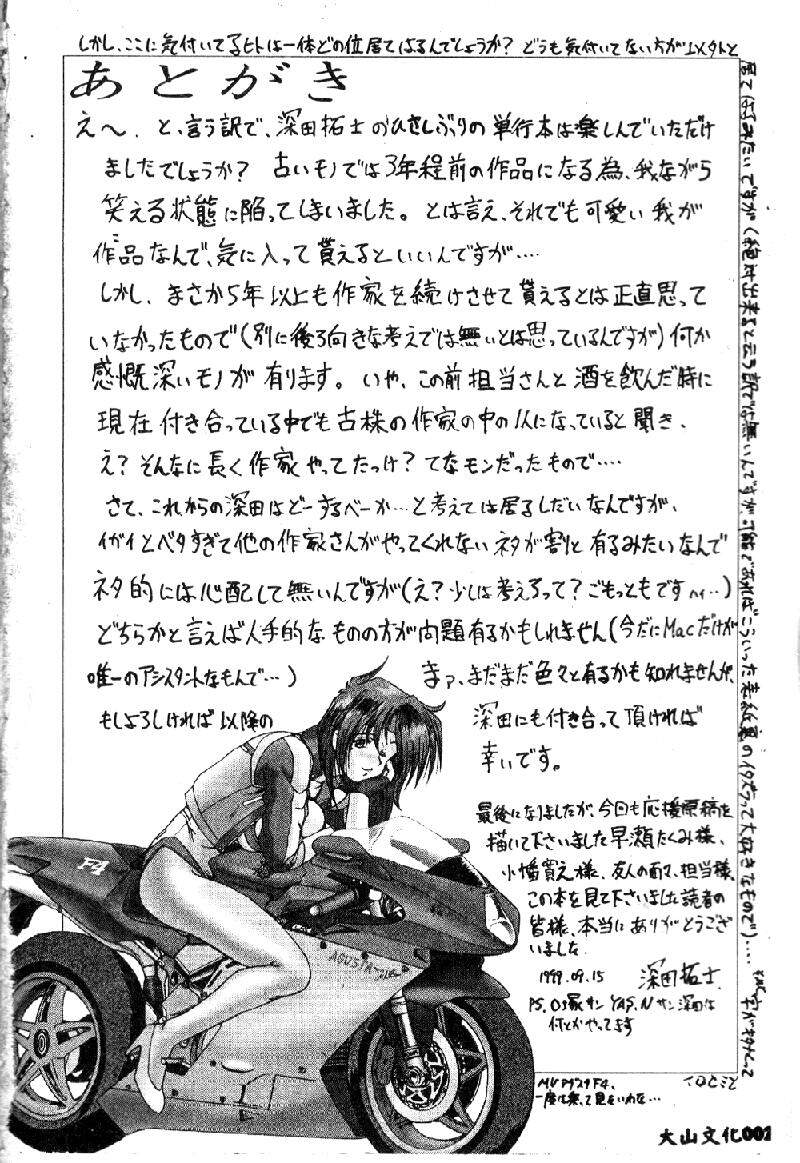 しかし、ここに気付いてるヒトは一体どの位居てはるんでしょうか? どうも気付いてない方が以外と
居てはるみたいですが(絶対出来ると云う訳では無いんですが可能であればこういった表紙裏のイタズラって大好きなもので)‥‥
あとがき
え〜、と、言う訳で、深田拓士のひさしぶりの単行本は楽しんでいただけ
ましたでしょうか? 古いモノでは3年程前の作品になる為、我ながら
笑える状態に陥ってしまいました。とは言え、それでも可愛い我が
作品なんで、気に入って貰えるといいんですが‥‥
しかし、まさか5年以上も作家を続けさせて貰えるとは正直思って
いなかったもので(別に後ろ向きな考えでは無いとは思っているんですが)何か
感慨深いモノが有ります。いや、この前担当さんと酒を飲んだ時に
現在付き合っている中でも古株の作家の中の1人になっていると聞き、
え?そんなに長く作家やってたっけ?てなモンだったもので‥‥
さて、これからの深田はどーするべーか…と考えては居るしだいなんですが、
イガイとベタすぎて他の作家さんがやってくれないネタが割と有るみたいなんで
ネタ的には心配して無いんですが(え?少しは考えろって?ごもっともですハイ…)
どちらかと言えば人手的なものの方が問題有るかもしれません(今だにMacだけが
唯一のアシスタントなもんで…)
まァ、まだまだ色々と有るかも知れませんが、
もしよろしければ以降の
深田にも付き合って頂ければ
幸いです。
最後になりましたが、今回も応援原稿を
描いて下さいました早瀬たくみ様、
小幡買え様、友人の面々、担当様、
この本を見て下さいました読者の
皆様、本当にありがとうござ
いました
1999.09.15 深田拓士
PS.O塚サン YAS.Nサン深田は
何とかやってます
F4
AGUSTA
MVアグスタF4、
一度は乗って見たいわな…
大山文化001